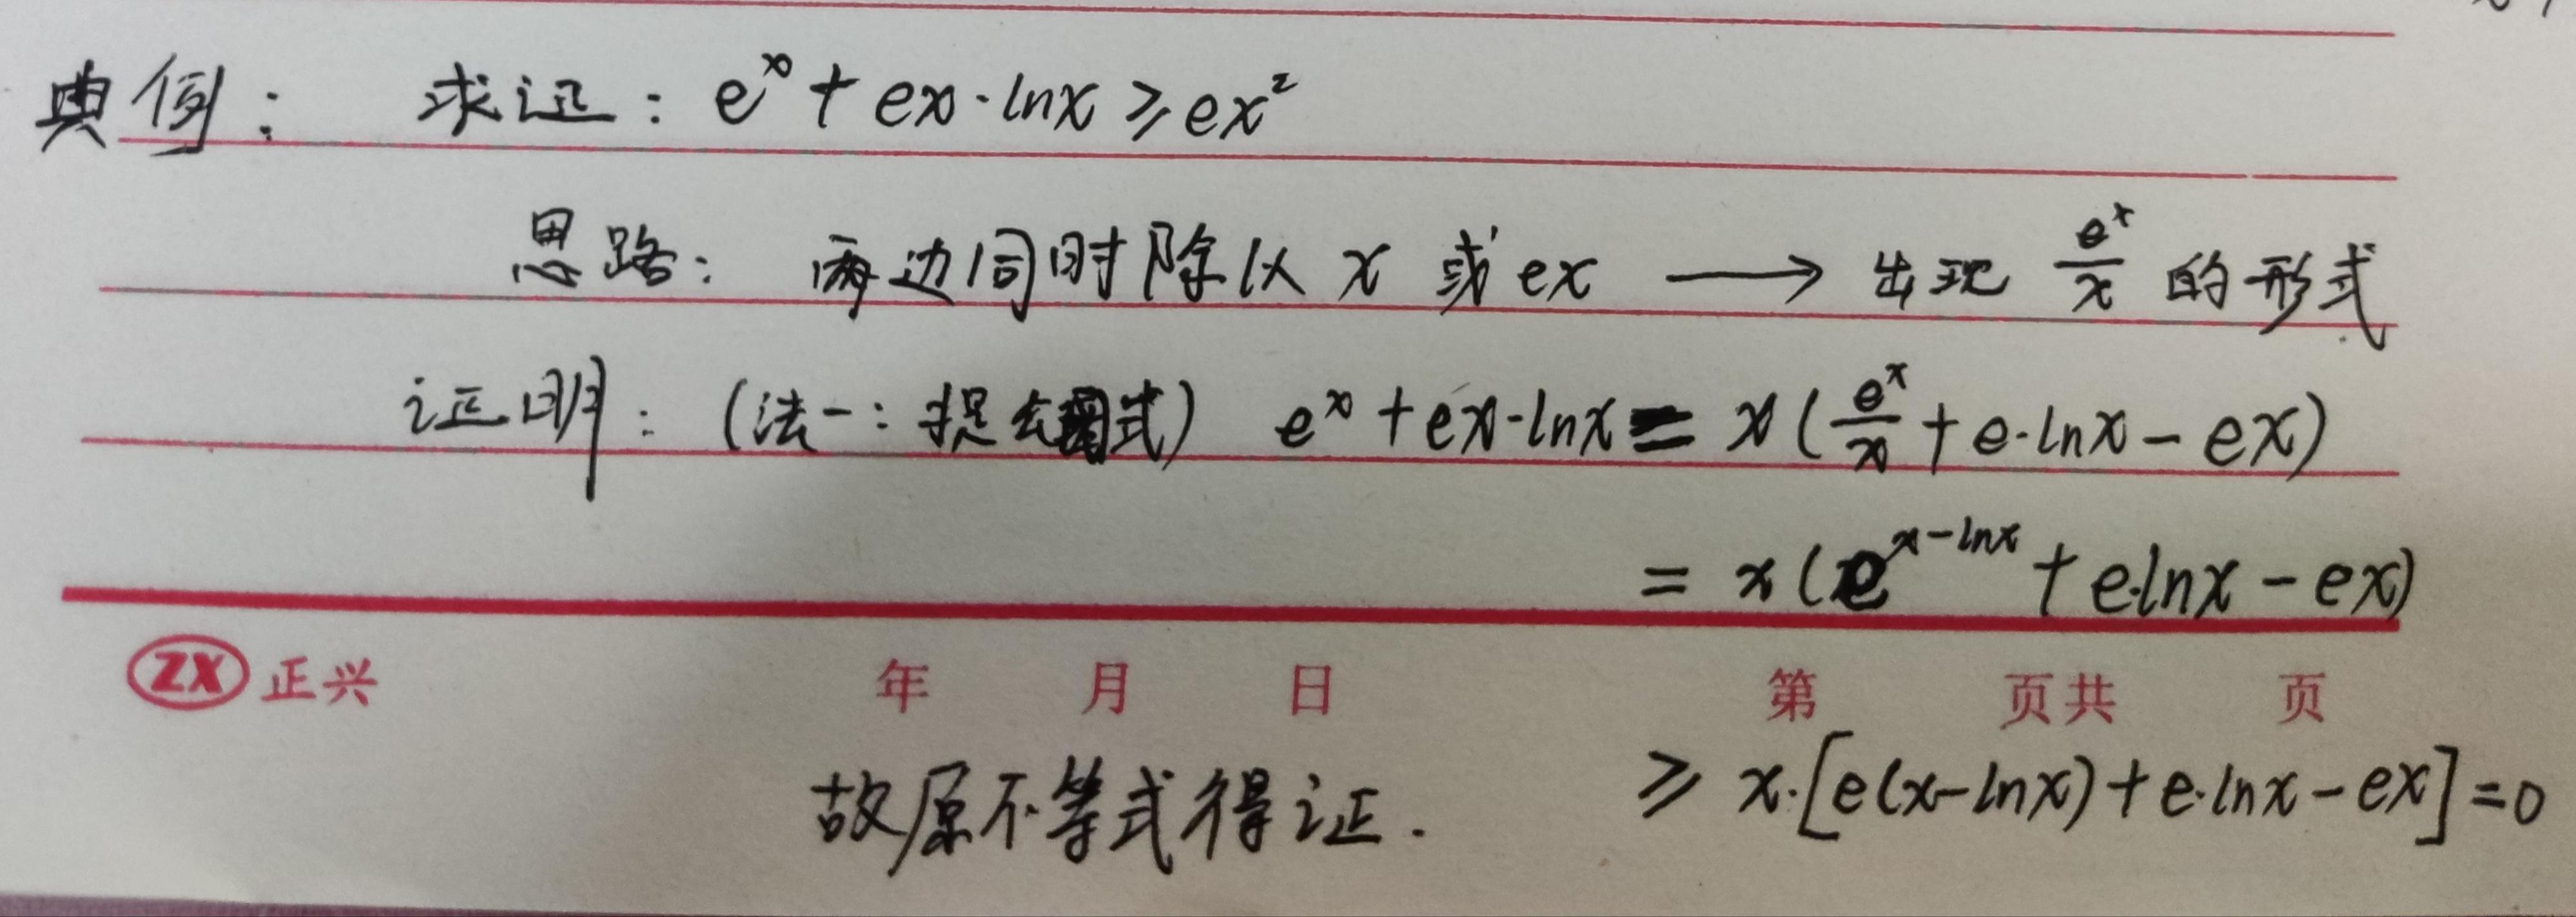 典例： 求证：e^x + ex·lnx ≥ ex²
思路：两边同时除以 x 或 ex ⟶ 出现 e^x/x 的形式
证明：(法一：提公因式) e^x + ex·lnx = x(e^x/x + e·lnx - ex)
= x(e^{x-lnx} + e·lnx - ex)
ZX 正兴 年 月 日 第 页共 页
故原不等式得证. ≥ x·[e(x-lnx) + e·lnx - ex] = 0